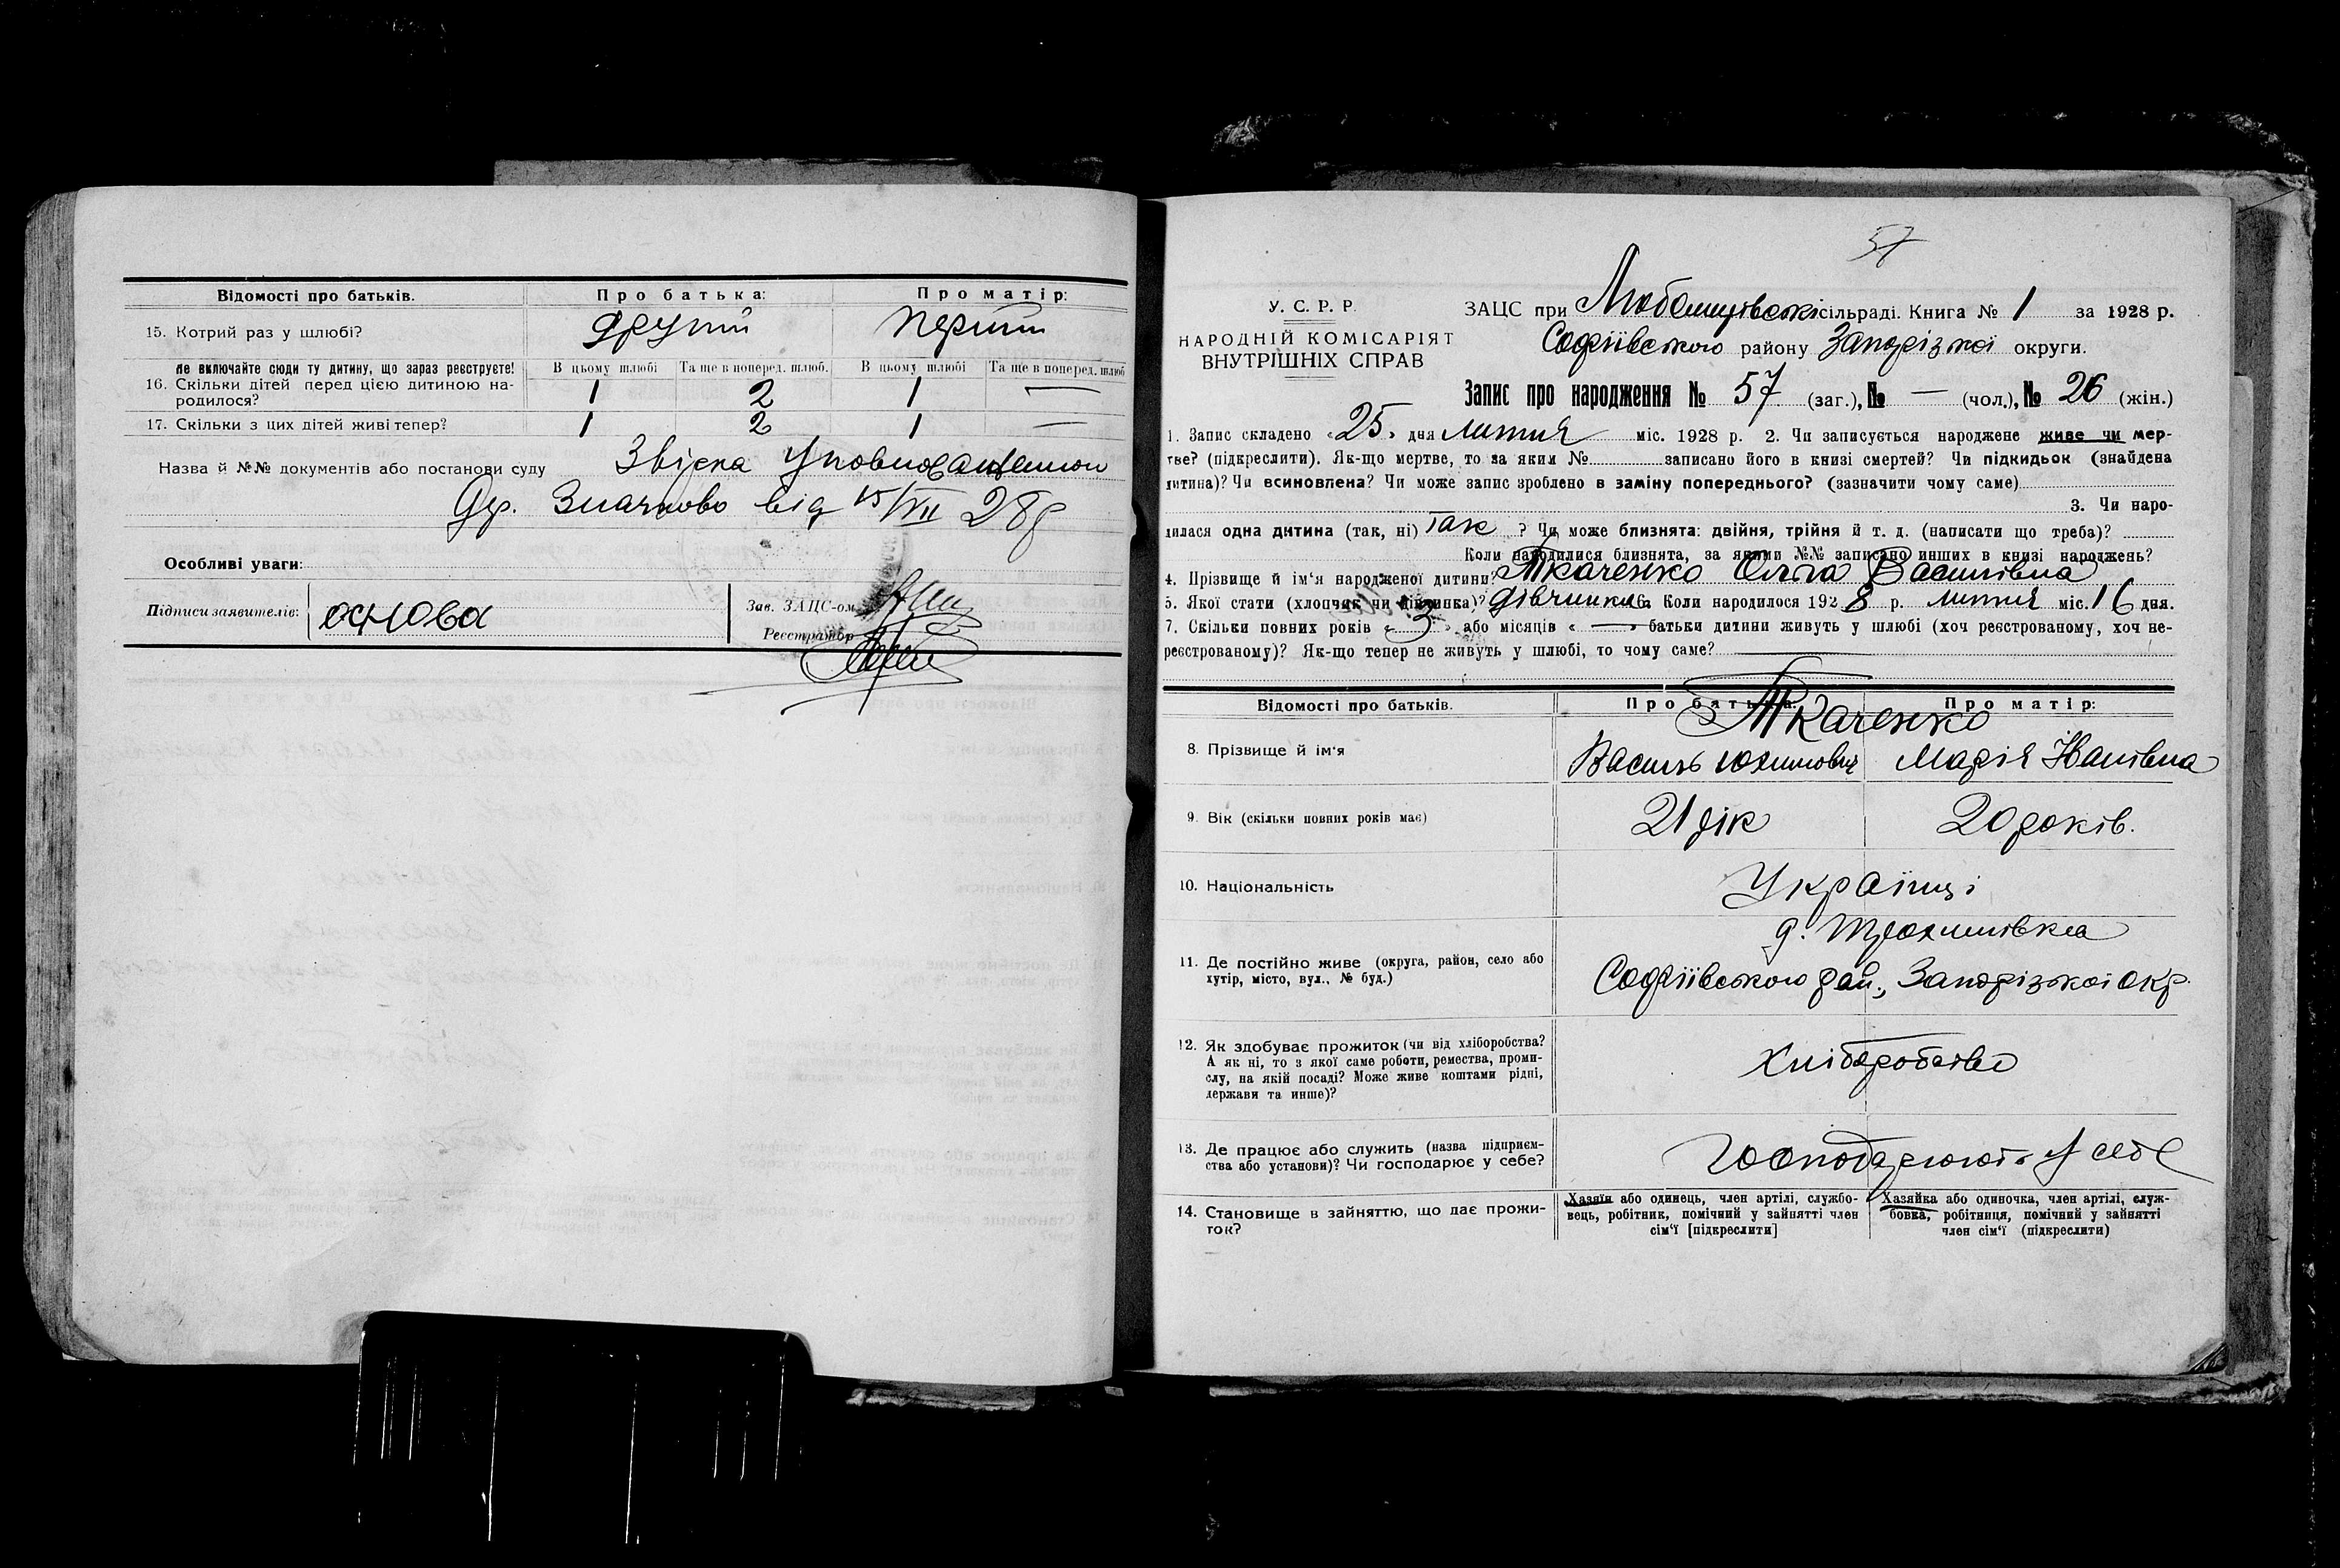 Відомості про батьків. Про батька: Про матір:
15. Котрий раз у шлюбі? другий перший
не включайте сюди ту дитину, що зараз реєструєте! В цьому шлюбі Та ще в поперед. шлюб. В цьому шлюбі Та ще в поперед. шлюб
16. Скільки дітей перед цією дитиною на- 1 2 1 —
родилося?
17. Скільки з цих дітей живі тепер? 1 2 1 —
Назва й №№ документів або постанови суду
від 15/VII 28р
Особливі уваги:
Підписи заявителів: Зав. ЗАЦС-ом
Реєстратор
57
У. С. Р. Р.
НАРОДНІЙ КОМІСАРІЯТ
ВНУТРІШНІХ СПРАВ
ЗАЦС при сільраді. Книга № 1 за 1928 р.
Софіївського району Запорізької округи.
Запис про народження № 57 (заг.), № — (чол.), № 26 (жін.)
1. Запис складено «25» дня лютня міс. 1928 р. 2. Чи записується народжене живе чи мер-
тве? (підкреслити). Як-що мертве, то за яким № записано його в книзі смертей? Чи підкидьок (знайдена
дитина)? Чи всиновлена? Чи може запис зроблено в заміну попереднього? (зазначити чому саме)
3. Чи наро-
дилася одна дитина (так, ні) так ? Чи може близнята: двійня, трійня й т. д. (написати що треба)?
Коли народилися близнята, за якими №№ записано инших в книзі народжень?
4. Прізвище й ім'я народженої дитини? Ткаченко Ольга Василівна
5. Якої стати (хлопчик чи дівчинка)? дівчинка 6. Коли народилося 1928 р. лютня міс. 16 дня.
7. Скільки повних років «3» або місяців «—» батьки дитини живуть у шлюбі (хоч реєстрованому, хоч не-
реєстрованому)? Як-що тепер не живуть у шлюбі, то чому саме?
Відомості про батьків. Про батька: Про матір:
Ткаченко
8. Прізвище й ім'я Василь Юхимович Марія Іванівна
9. Вік (скільки повних років має) 21 рік 20 років.
10. Національність Українці
д. Трохимівка
11. Де постійно живе (округа, район, село або
хутір, місто, вул., № буд.) Софіївського рай., Запорізької окр.
12. Як здобуває прожиток (чи від хліборобства?
А як ні, то з якої саме роботи, ремества, проми-
слу, на якій посаді? Може живе коштами рідні,
держави та инше)? Хліборобство
13. Де працює або служить (назва підприєм-
ства або установи)? Чи господарює у себе? Господарюють у себе
14. Становище в зайняттю, що дає прожи-
ток?
Хазяїн або одинець, член артілі, службо-
вець, робітник, помічний у зайнятті член
сім'ї [підкреслити]
Хазяйка або одиночка, член артілі, служ-
бовка, робітниця, помічний у зайнятті
член сім'ї (підкреслити)